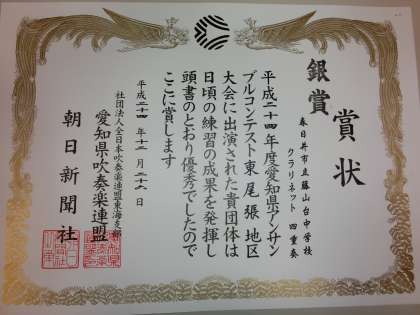 賞状
銀賞
春日井市立藤山台中学校
クラリネット四重奏
平成二十四年度愛知県アンサン
ブルコンテスト東尾張地区
大会に出演された貴団体は
日頃の練習の成果を発揮し
頭書のとおり優秀でしたので
ここに賞します
平成二十四年十二月二十二日
社団法人全日本吹奏楽連盟東海支部
愛知県吹奏楽連盟
朝日新聞社